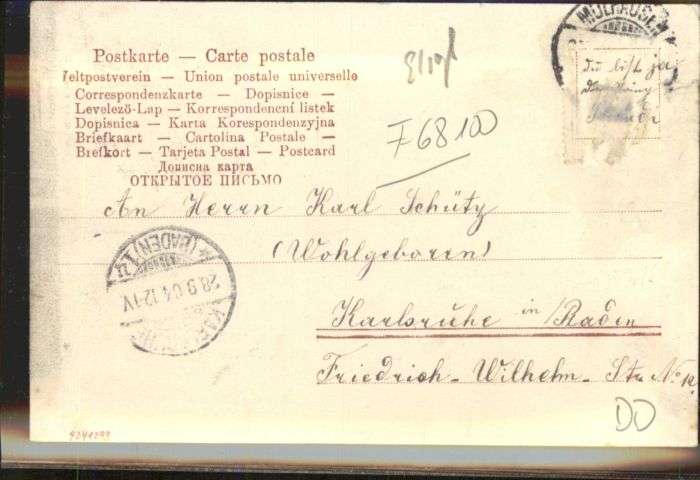 Postkarte — Carte postale
Weltpostverein — Union postale universelle
Correspondenzkarte — Dopisnice —
Levelező-Lap — Korrespondenční listek
Dopisnica — Karta Korespondenzyjna
Briefkaart — Cartolina Postale —
Brefkort — Tarjeta Postal — Postcard
Дописна карта
ОТКРЫТОЕ ПИСЬМО
MÜLHAUSEN
Du bist ja
F 68100
An Herrn Karl Schütz
(Wohlgeboren)
Karlsruhe in Baden
Friedrich-Wilhelm-Str. No
(BADEN)
28.9.04.12-1V
DD